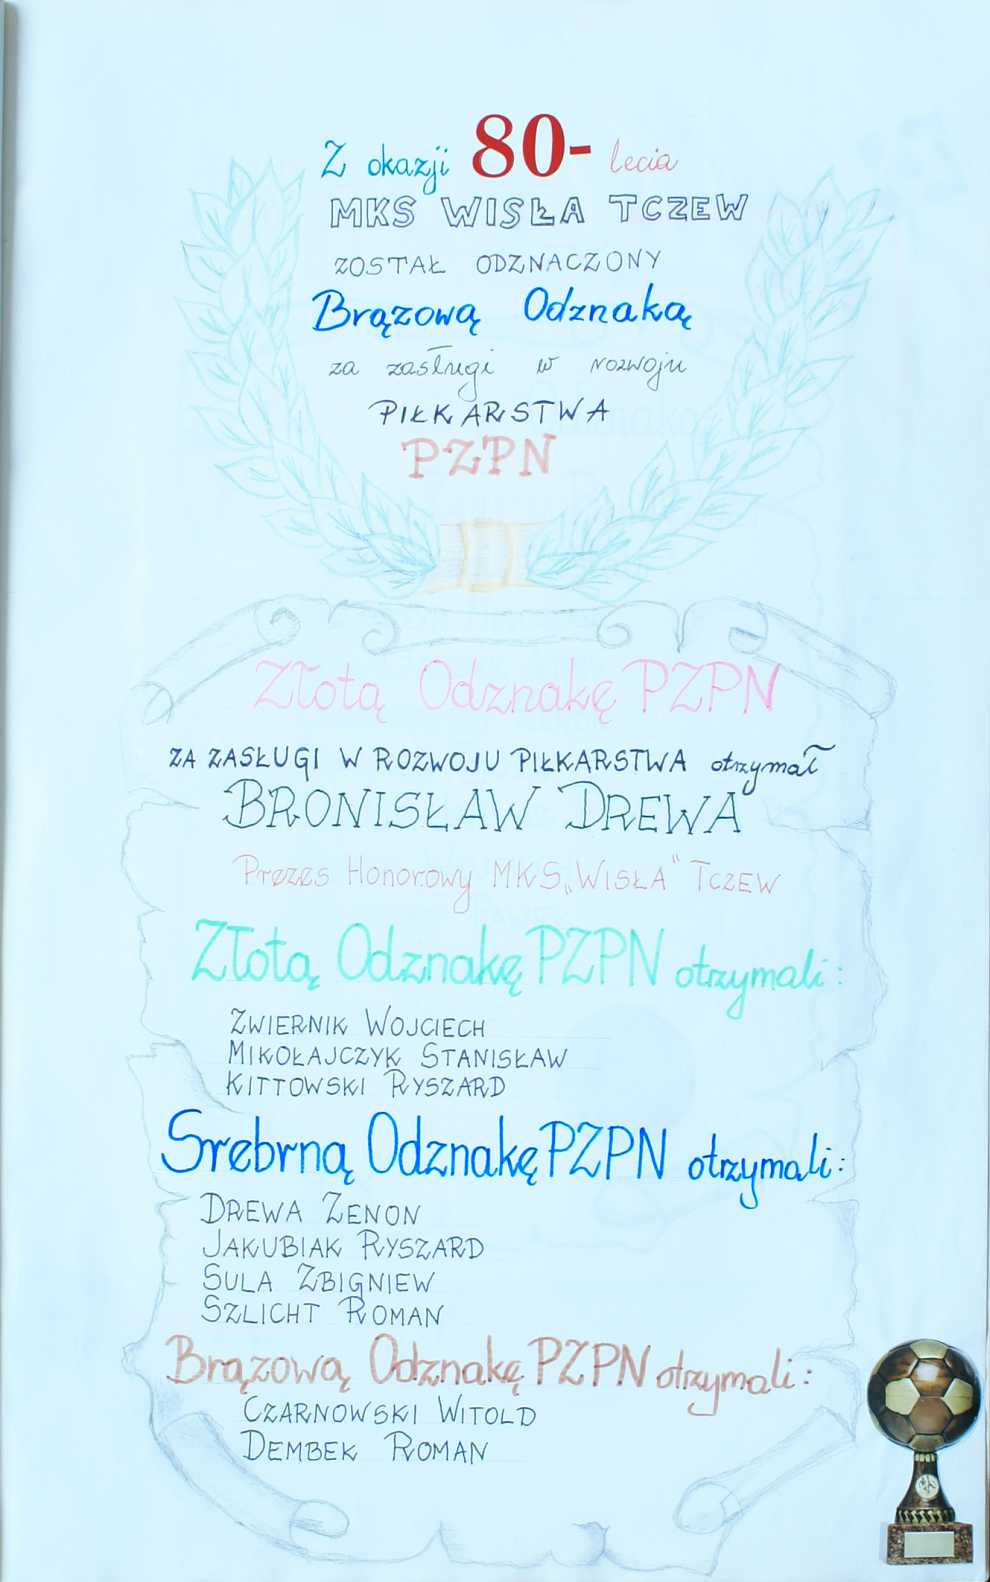 Z okazji 80-lecia
MKS WISŁA TCZEW
ZOSTAŁ ODZNACZONY
Brązową Odznaką
za zasługi w rozwoju
PIŁKARSTWA
PZPN
Złotą Odznakę PZPN
ZA ZASŁUGI W ROZWOJU PIŁKARSTWA otrzymał
BRONISŁAW DREWA
Prezes Honorowy MKS „WISŁA" TCZEW
Złotą Odznakę PZPN otrzymali:
ZWIERNIK WOJCIECH
MIKOŁAJCZYK STANISŁAW
KITTOWSKI RYSZARD
Srebrną Odznakę PZPN otrzymali:
DREWA ZENON
JAKUBIAK RYSZARD
SULA ZBIGNIEW
SZLICHT ROMAN
Brązową Odznakę PZPN otrzymali:
CZARNOWSKI WITOLD
DEMBEK ROMAN